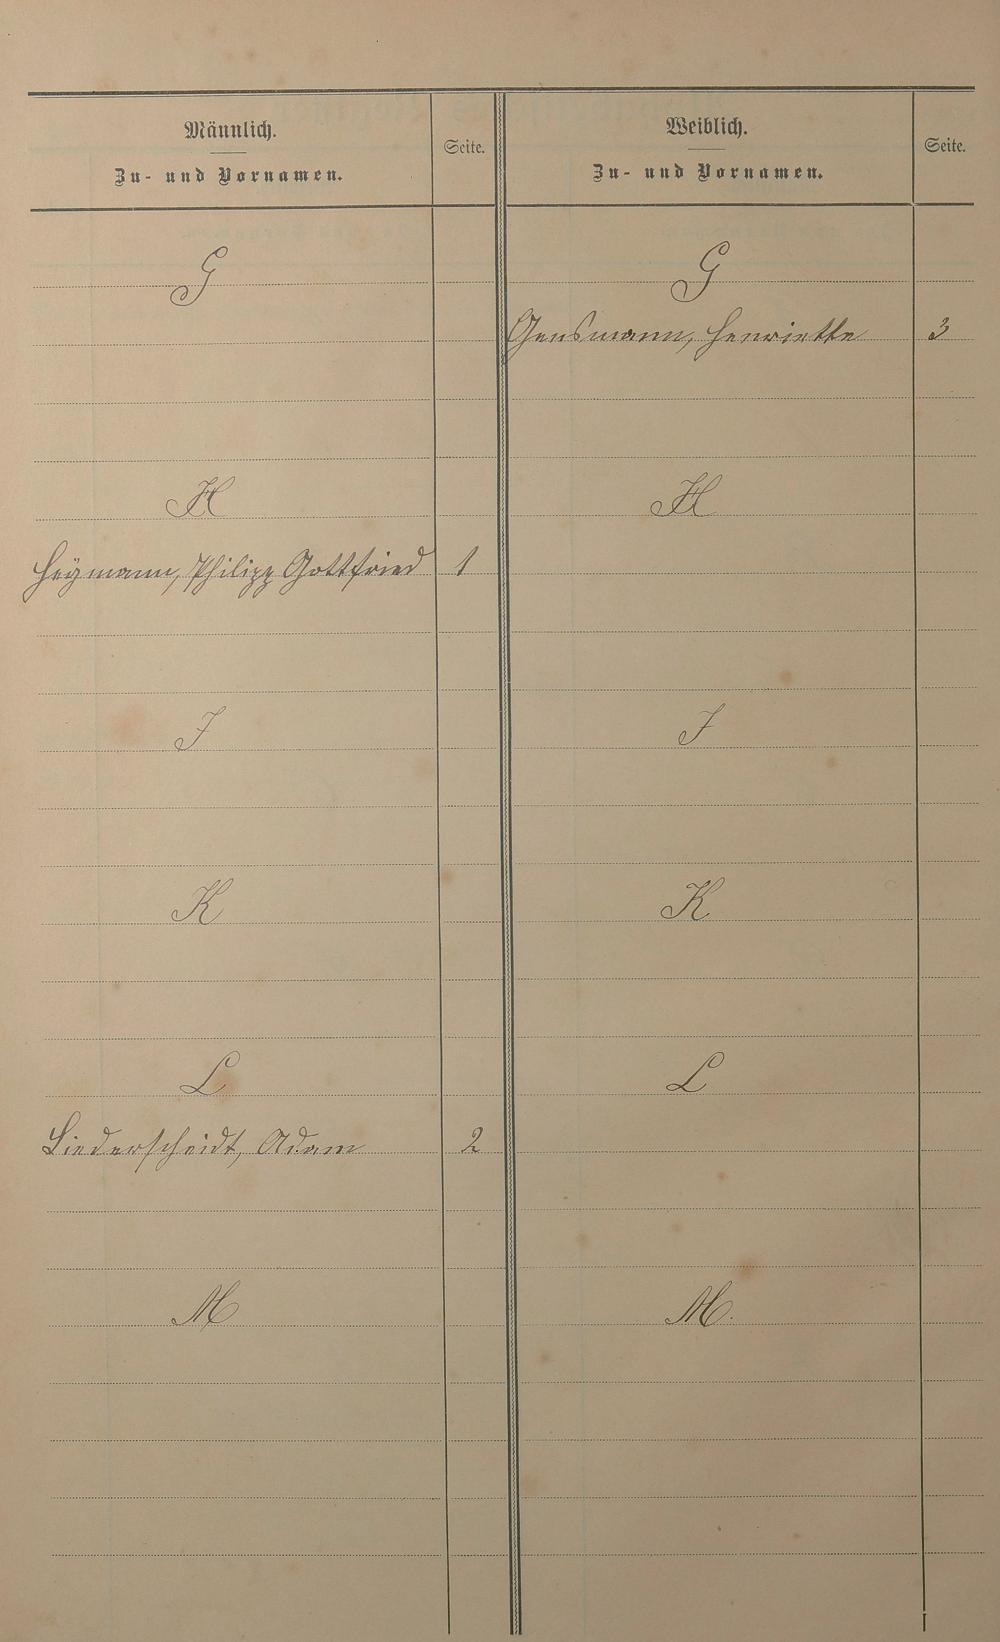 Männlich.
Zu- und Vornamen.
Seite.
Weiblich.
Zu- und Vornamen.
Seite.
G
G
Gensmann, Henriette 3
H
H
Heÿmann, Philipp Gottfried 1
J
J
K
K
L
L
Liederscheidt, Adam 2
M
M.